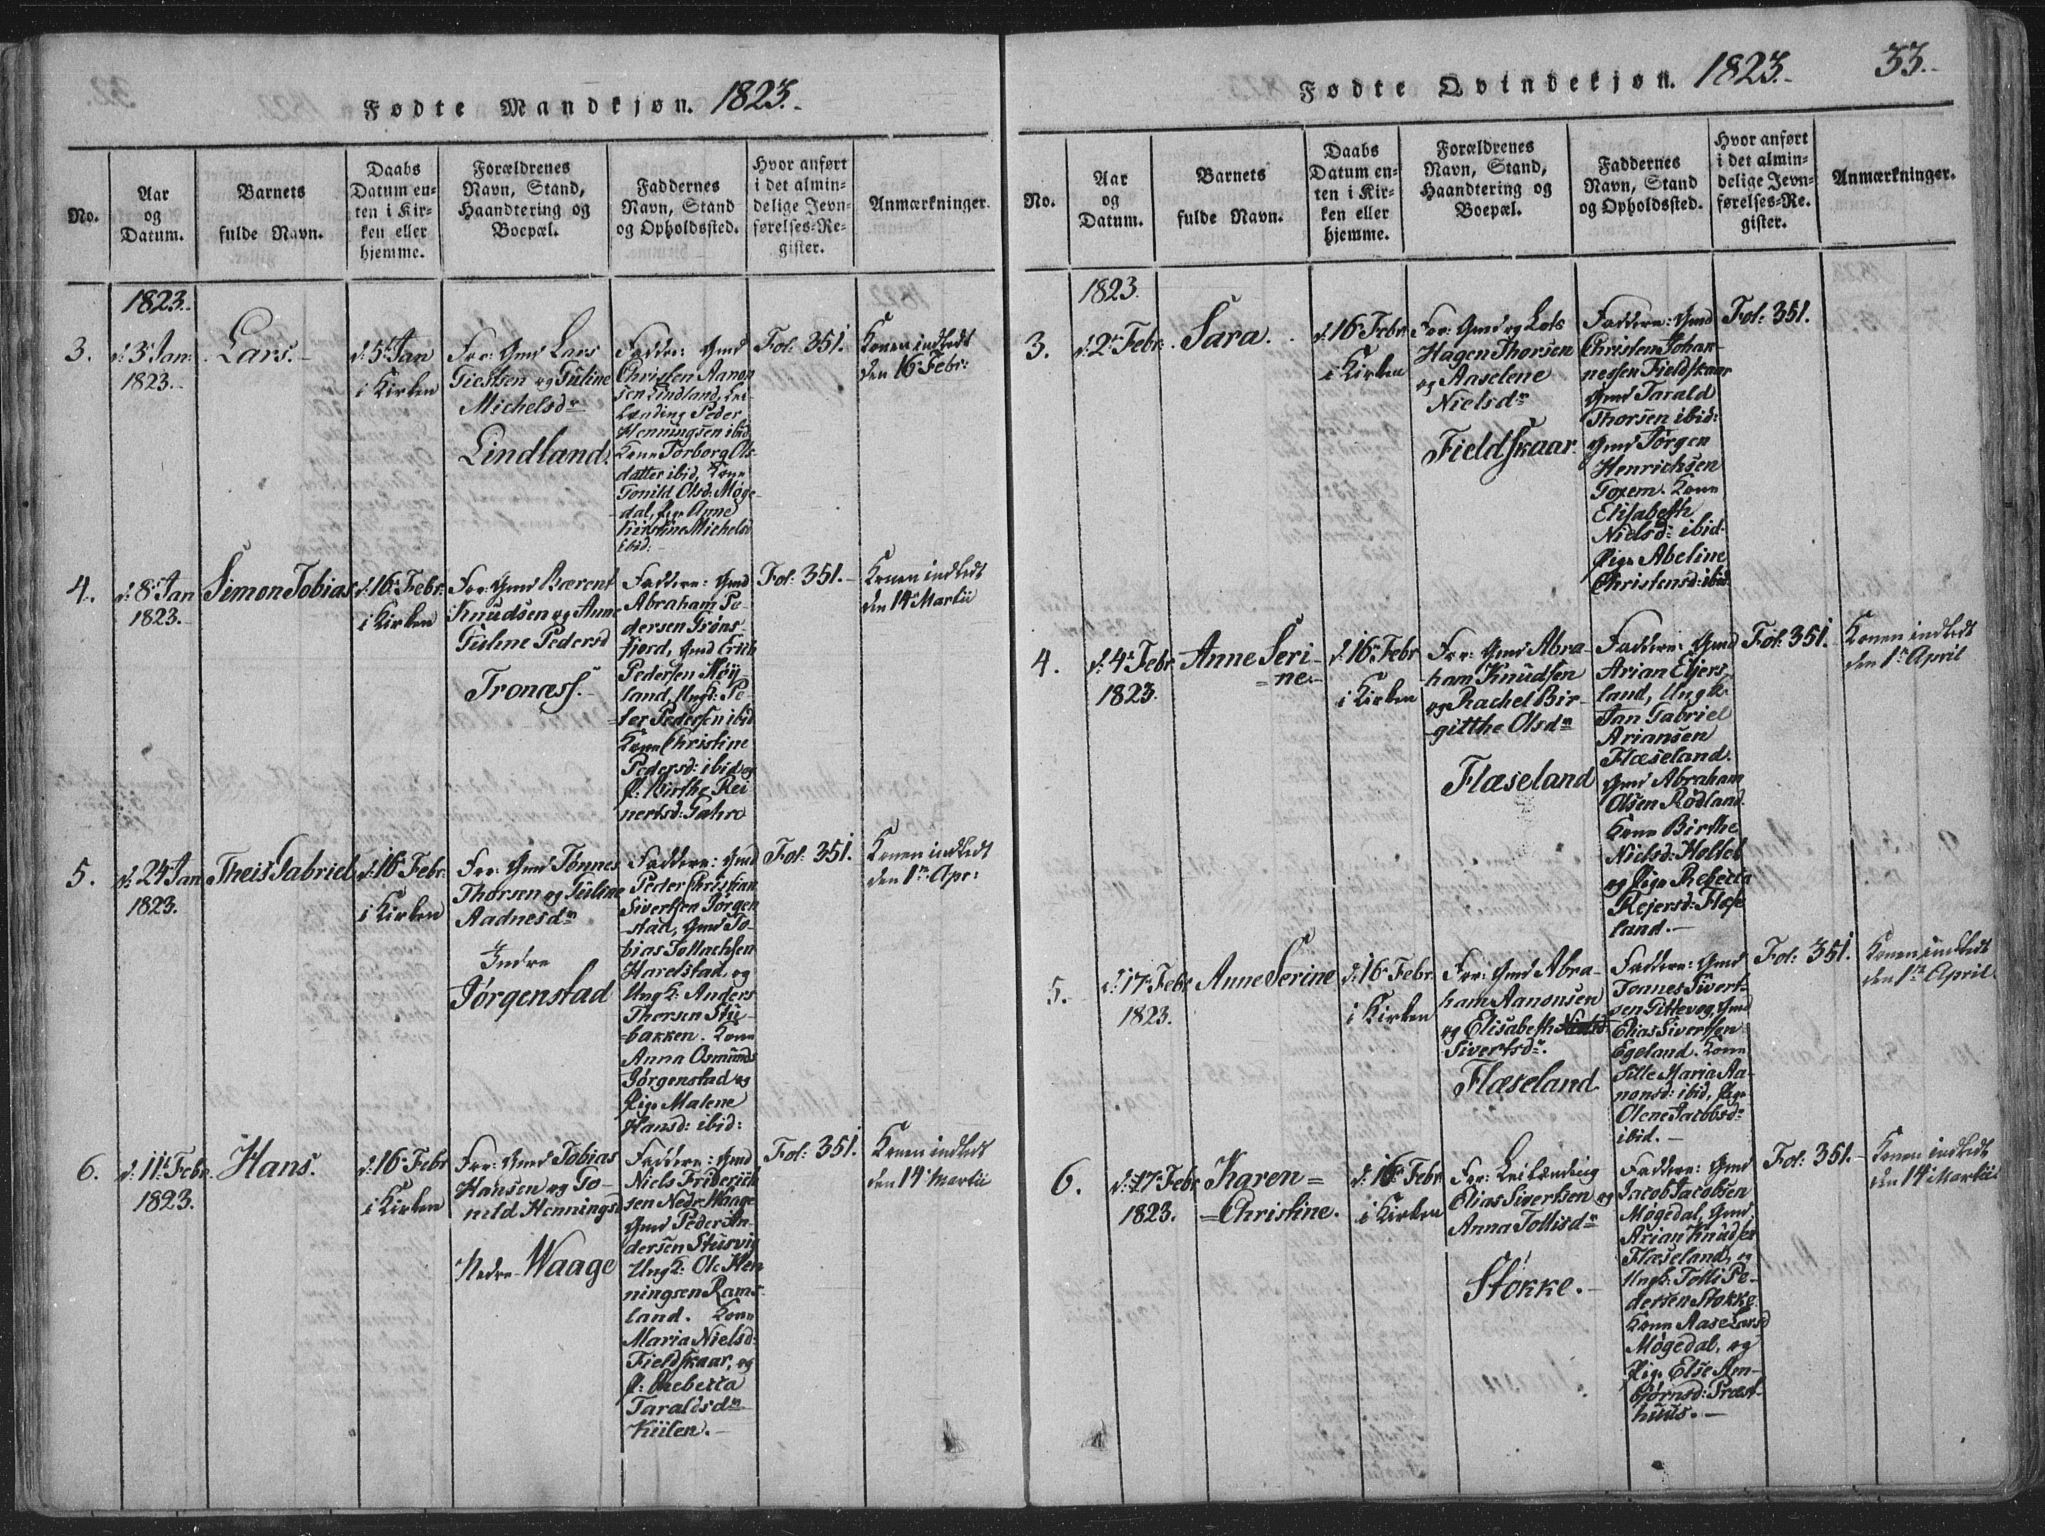 Fødte Mandkjøn. 1823.
No.
Aar
og
Datum.
Barnets
fulde Navn.
Daabs
Datum en-
ten i Kir-
ken eller
hjemme.
Forældrenes
Navn, Stand,
Haandtering og
Boepæl.
Faddernes
Navn, Stand
og Opholdssted.
Hvor anført
i det almin-
delige Jevn-
førelses-Re-
gister.
Anmærkninger.
1823.
3.
d: 3 Jan:
1823.
Lars.
d: 5 Jan
i Kirken
For: Gmd Lars
Giertsen og Juline
Michelsdr
Lindland.
Faddere: Gmd
Christen Aanon
sen Lindland, Lei-
lænding Peder
Henningsen ibid
Kone Torborg Ols-
datter ibid, Kone
Gonild Olsd: Møge-
dal, Pige Anne
Kirstine Michelsd
ibid:
Fol: 351.
Konen indledt
den 16 Febr:
4.
d: 8 Jan
1823.
Simon Tobias
d: 16 Febr:
i Kirken
For: Gmd Bærent
Knudsen og Anne
Juline Pedersd
Tronæss.
Faddere: Gmd
Abraham Pe-
dersen Grøns-
fjord, Gmd Erich
Pedersen Høy
land, Ungk: Pe-
ter Pedersen ibid
Kone Christine
Pedersd: ibid og
P: Birthe Rei-
nertsd: Jahre
Fol: 351.
Konen indledt
den 14 Martii
5.
d: 24 Jan
1823.
Theis Gabriel
d: 16 Febr:
i Kirken
For: Gmd Tønnes
Thorsen og Juline
Aadnesdr
Indre
Jørgenstad
Faddere: Gmd
Peder Christian
Sivertsen Jørgen
stad, Gmd To-
bias Tollachsen
Harelstad, og
Ungk: Anders
Thorsen Stu-
bakken. Kone
Anna Osmunds
Jørgenstad og
Pige Malene
Hansd: ibid:
Fol: 351.
Konen indledt
den 1ste Apr:
6.
d: 11 Febr.
1823.
Hans.
d: 16 Febr
i Kirken
For: Gmd Tobias
Hansen og Go-
nild Hennings
Nedre Waage
Faddere: Gmd
Niels Friderich
sen Nedr Waage
Gmd Peder An-
dersen Stusvig
Ungk: Ole Hen
ningsen Rams-
land. Kone
Maria Nielsd:
Fieldskaar, og
P: Rebecca
Taraldsdr
Kiilen.
Fol: 351.
Konen indledt
den 14 Martii
Fødte Qvindekjøn. 1823. 33.
No.
Aar
og
Datum.
Barnets
fulde Navn.
Daabs
Datum en-
ten i Kir-
ken eller
hjemme.
Forældrenes
Navn, Stand,
Haandtering og
Boepæl.
Faddernes
Navn, Stand
og Opholdssted.
Hvor anført
i det almin-
delige Jevn-
førelses-Re-
gister.
Anmærkninger.
1823.
3.
d: 2 Febr.
Sara.
d: 16 Febr
i Kirken
For: Gmd og Lots
Hagen Thorsen
og Aaselene
Nielsdr
Fieldskaar.
Faddere: Gmd
Christen Johan-
nessen Fieldskaar
Gmd Tarald
Thorsen ibid:
Gmd Jørgen
Henrichsen
Goxem. Kone
Elisabeth
Nielsd: ibid.
Pige Abeline
Christensd: ibid
Fol: 351.
4.
d: 4 Febr
1823.
Anne Seri-
ne.
d: 16 Febr
i Kirken
For: Gmd Abra
ham Knudsen
og Rachel Bir-
gitthe Olsdr
Flæseland
Faddere: Gmd
Arian Ejers-
land, Ungk:
Jan Gabriel
Ariansen
Flæseland.
Gmd Abraham
Olsen Rødland
Kone Birthe
Nielsd: Holleb
og Pige Rebecca
Rejersd: Flæse
land.
Fol: 351.
Konen indledt
den 1ste April
5.
d: 17 Febr.
1823.
Anne Serine
d: 16 Febr.
i Kirken
For: Gmd Abra-
ham Aanonsen
og Elisabeth
Sivertsdr.
Flæseland
Faddere: Gmd
Tønnes Sivert-
sen Gittevog, Gmd
Elias Sivertsen
Egeland. Kone
Sille Maria Aa-
nonsd: ibid, Pige
Olene Jacobsd:
ibid.
Fol: 351.
Konen indledt
den 1ste April
6.
d: 17 Febr
1823.
Karen
Christine.
d: 16 Febr
i Kirken
For: Leilænding
Elias Sivertsen og
Anna Tollisdr
Stokke.
Faddere: Gmd
Jacob Jacobsen
Møgedal, Gmd
Arian Knudsen
Flæseland, og
Ungk: Tolli Pe-
dersen Stokke
Kone Aase Larsd
Møgedal, og
Pige Else Aen-
bjørnsd: Præst-
huus.
Fol: 351.
Konen indledt
den 14 Martii